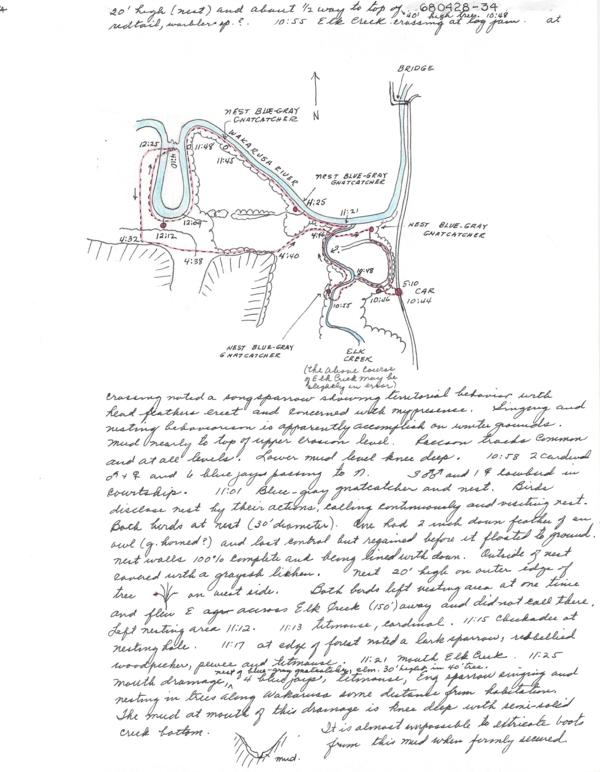 20' high (nest) and about 1/2 way to top of 40' high tree. 10:48
680428-34
redtail, warbler sp.? 10:55 Elk Creek crossing at log jam. at
BRIDGE
N
NEST BLUE-GRAY
GNATCATCHER
WAKARUSA RIVER
12:25
11:48
11:45
NEST BLUE-GRAY
GNATCATCHER
4:25
11:21
NEST BLUE-GRAY
GNATCATCHER
12:09
12:12
4:32
4:38
4:40
10:48
5:10
CAR
10:46
10:44
10:55
NEST BLUE-GRAY
GNATCATCHER
ELK
CREEK
(the above course
of Elk Creek may be
slightly in error)
crossing noted a song sparrow showing territorial behavior with
head feathers erect and concerned with my presense. Singing and
nesting behavior is apparently accomplish on winter grounds.
Mud nearly to top of upper erosion level. Racoon tracks common
and at all levels. Lower mud level knee deep. 10:58 2 cardinal
♂ + ♀ and 6 blue jays passing to N. 3 ♂♂ and 1 ♀ cowbird in
courtship. 11:01 Blue-gray gnatcatcher and nest. Birds
disclose nest by their actions, calling continuously and visiting nest.
Both birds at nest (30' diameter). One had 2 inch down feather of an
owl (g. horned?) and lost control but regained before it floated to ground.
nest walls 100% complete and being lined with down. Outside of nest
covered with a grayish lichen. Nest 20' high on outer edge of
tree on west side. Both birds left nesting area at one time
and flew E across Elk Creek (150') away and did not call there.
Left nesting area 11:12. 11:13 titmouse, cardinal. 11:15 Chickadee at
nesting hole. 11:17 at edge of forest noted a lark sparrow, redbellied
woodpecker, pewee and titmouse. 11:21 mouth Elk Creek. 11:25
nest of blue-gray gnatcatcher, elm 30' high in 40' tree.
mouth drainage, 4 blue jays, titmouse, Eng sparrow singing and
nesting in trees along Wakarusa some distance from habitation.
The mud at mouth of this drainage is knee deep with semi-solid
creek bottom. It is almost impossible to extricate boots
mud. from this mud when firmly secured